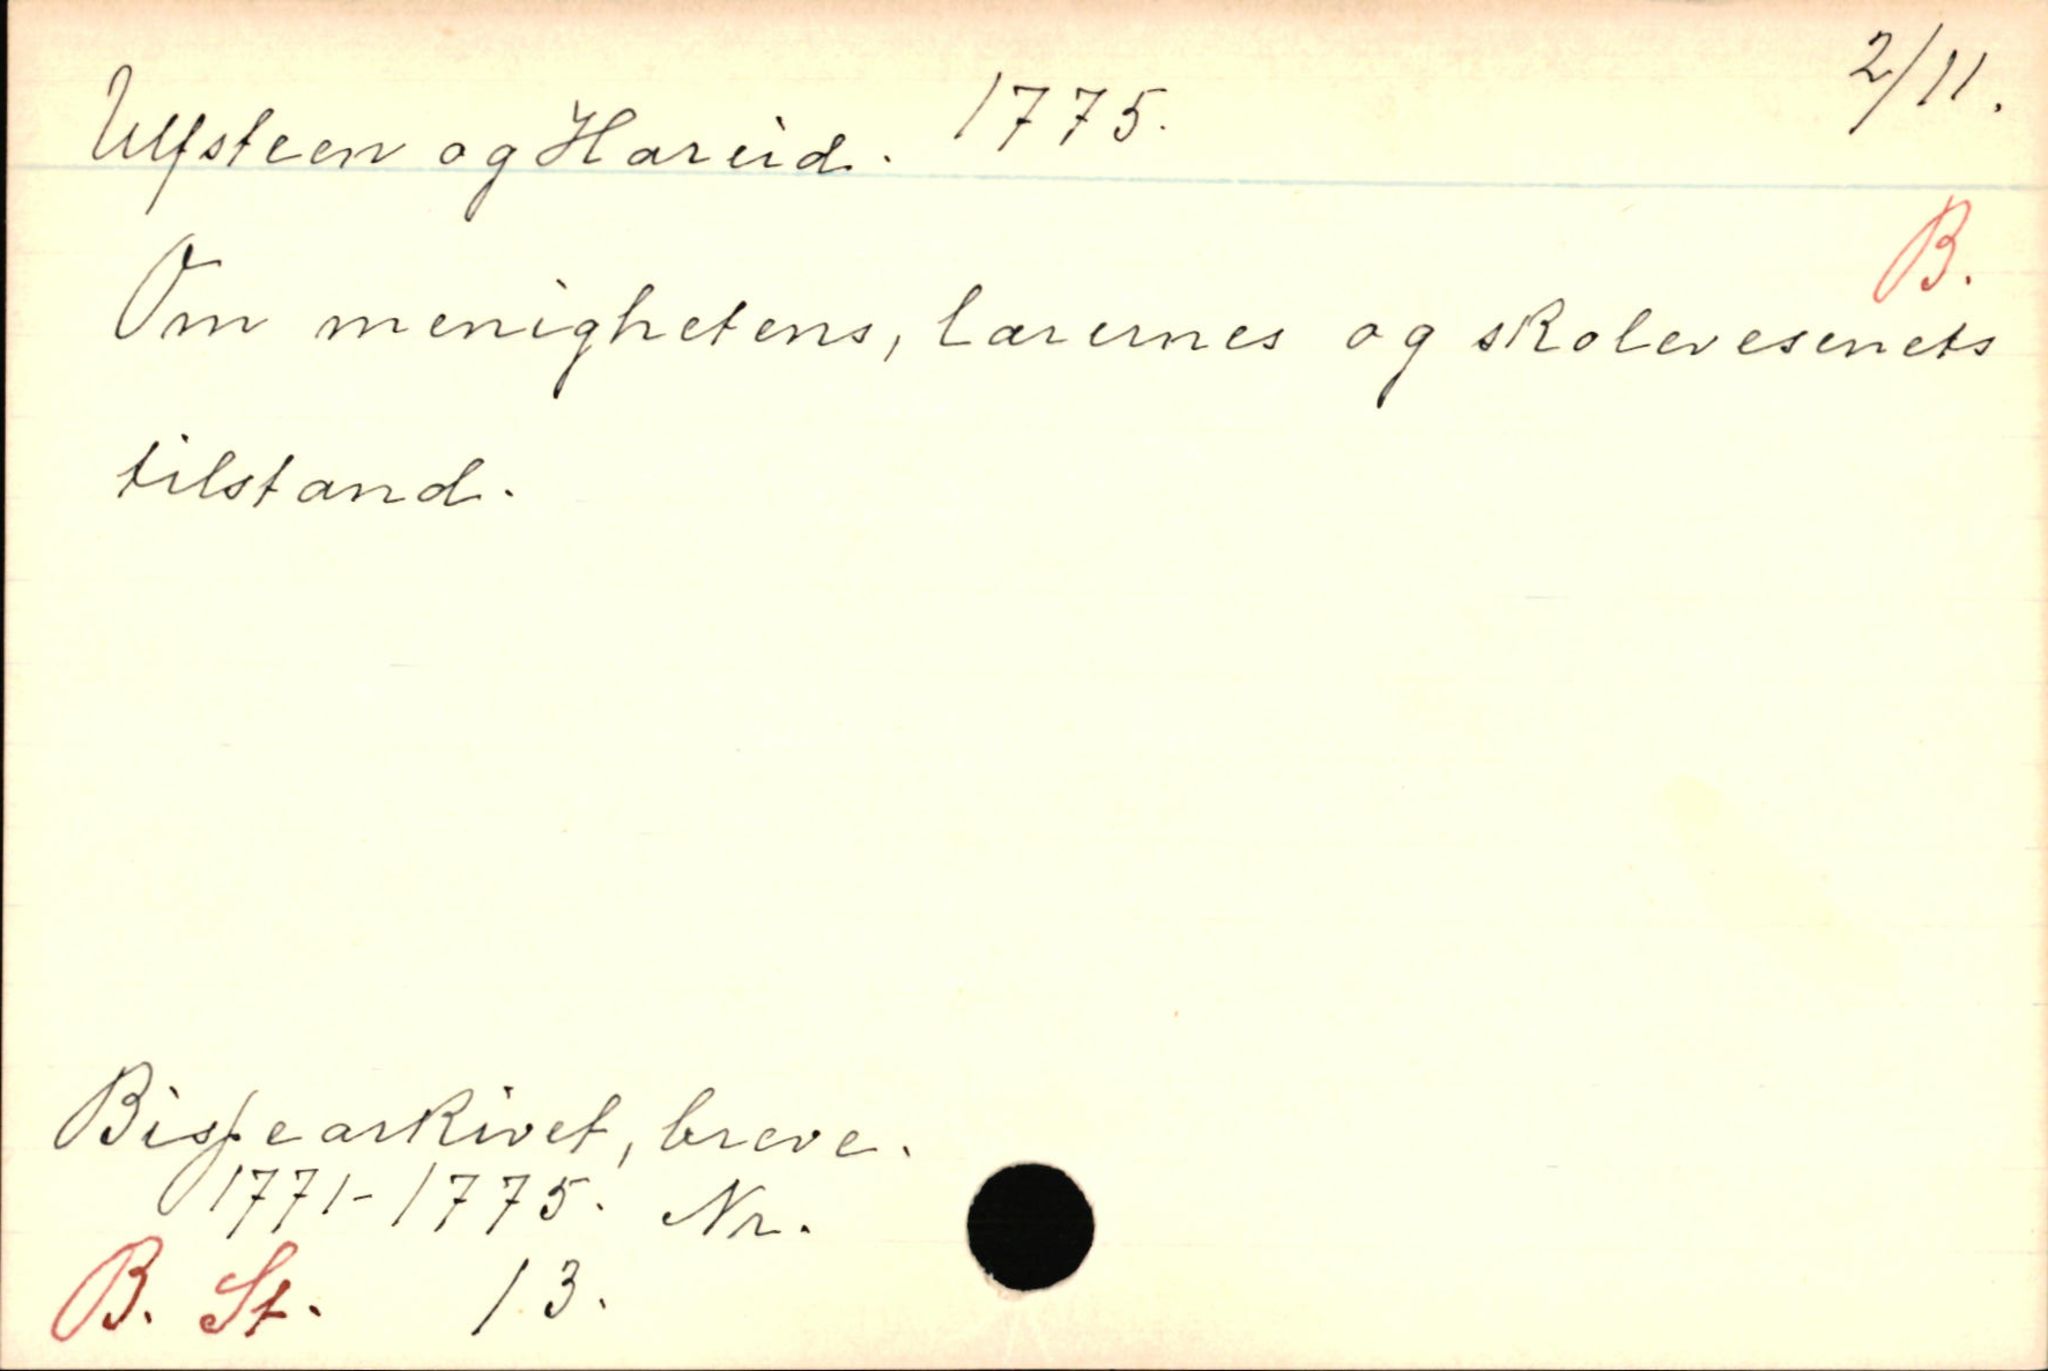 Ulfsteen og Hareid. 1775. 2/11.
B.
Om menighetens, lærernes og skolevesenets
tilstand.
Bispearkivet, breve.
1771-1775. Nr.
B. St. 13.